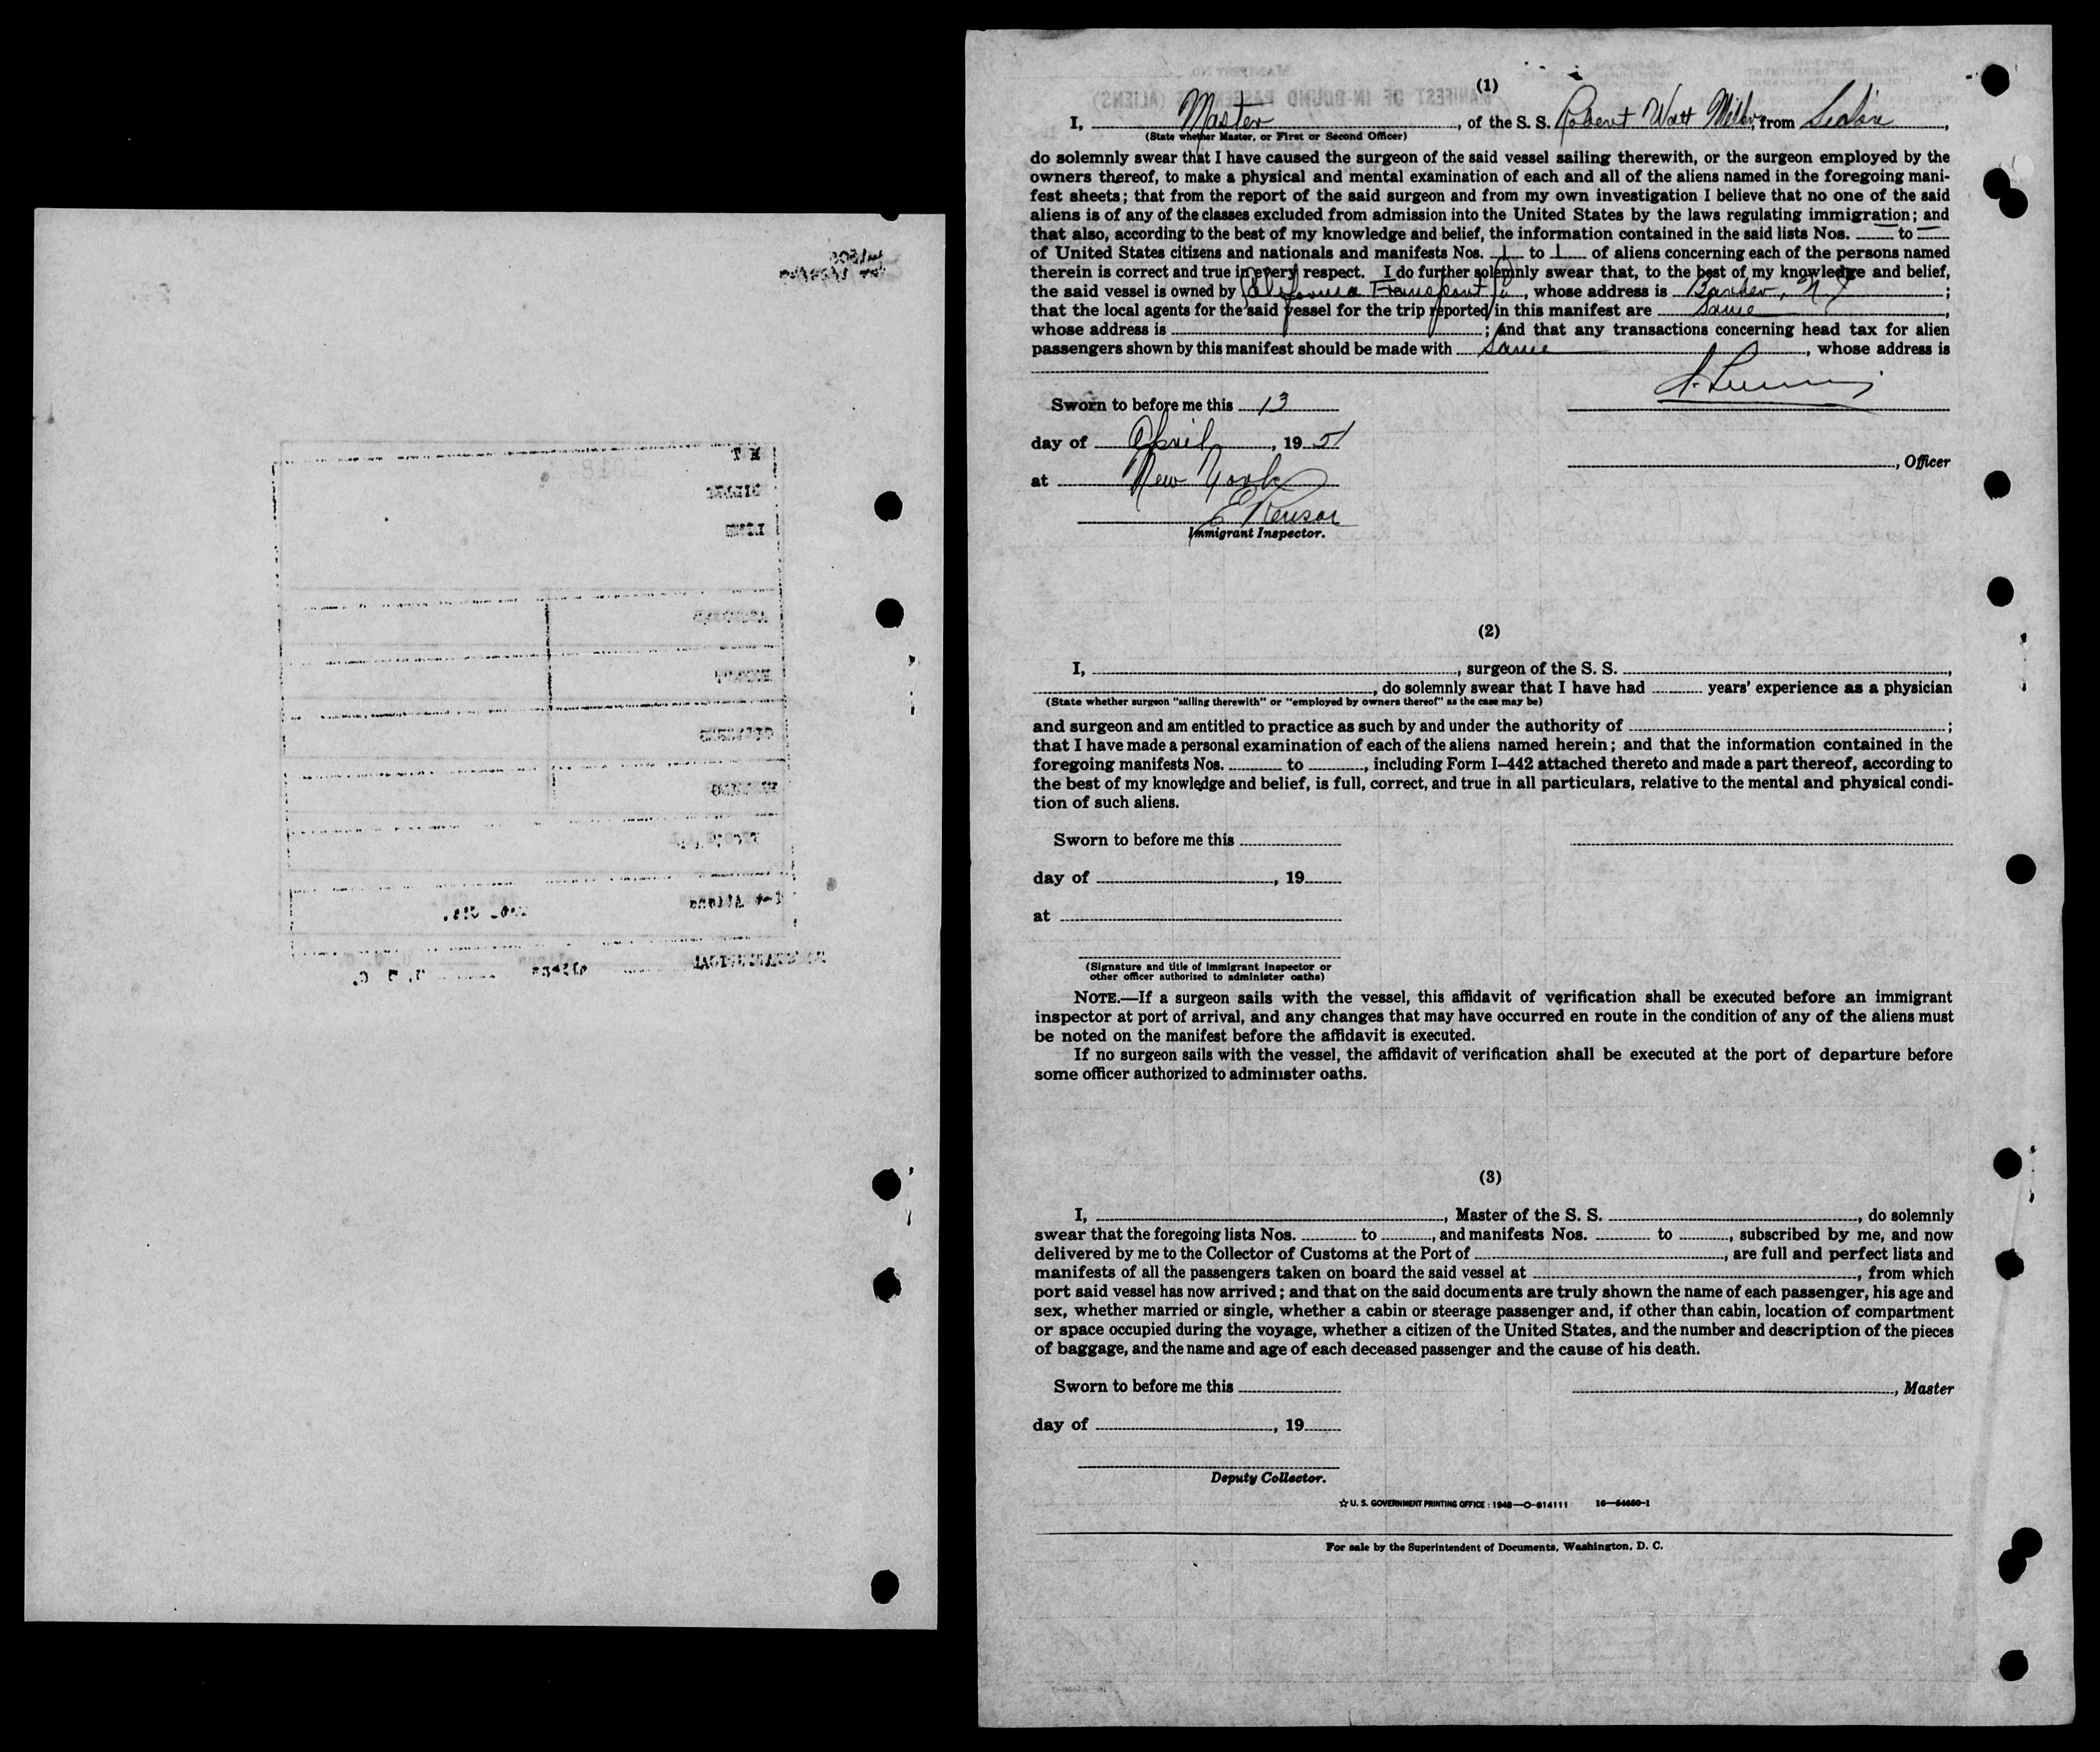 (1)
I, Master, of the S. S. Robert Watt Miller, from
(State whether Master, or First or Second Officer)
do solemnly swear that I have caused the surgeon of the said vessel sailing therewith, or the surgeon employed by the
owners thereof, to make a physical and mental examination of each and all of the aliens named in the foregoing mani-
fest sheets; that from the report of the said surgeon and from my own investigation I believe that no one of the said
aliens is of any of the classes excluded from admission into the United States by the laws regulating immigration; and
that also, according to the best of my knowledge and belief, the information contained in the said lists Nos. — to —
of United States citizens and nationals and manifests Nos. 1 to 1 of aliens concerning each of the persons named
therein is correct and true in every respect. I do further solemnly swear that, to the best of my knowledge and belief,
the said vessel is owned by California Transport Co, whose address is N Y;
that the local agents for the said vessel for the trip reported in this manifest are Same,
whose address is ; and that any transactions concerning head tax for alien
passengers shown by this manifest should be made with Same, whose address is
Sworn to before me this 13
day of April, 19 51
, Officer
at New York
Immigrant Inspector.
(2)
I, , surgeon of the S. S. ,
, do solemnly swear that I have had years' experience as a physician
(State whether surgeon "sailing therewith" or "employed by owners thereof" as the case may be)
and surgeon and am entitled to practice as such by and under the authority of ;
that I have made a personal examination of each of the aliens named herein; and that the information contained in the
foregoing manifests Nos. to , including Form I–442 attached thereto and made a part thereof, according to
the best of my knowledge and belief, is full, correct, and true in all particulars, relative to the mental and physical condi-
tion of such aliens.
Sworn to before me this
day of , 19
at
(Signature and title of immigrant inspector or
other officer authorized to administer oaths)
NOTE.—If a surgeon sails with the vessel, this affidavit of verification shall be executed before an immigrant
inspector at port of arrival, and any changes that may have occurred en route in the condition of any of the aliens must
be noted on the manifest before the affidavit is executed.
If no surgeon sails with the vessel, the affidavit of verification shall be executed at the port of departure before
some officer authorized to administer oaths.
(3)
I, , Master of the S. S. , do solemnly
swear that the foregoing lists Nos. to , and manifests Nos. to , subscribed by me, and now
delivered by me to the Collector of Customs at the Port of , are full and perfect lists and
manifests of all the passengers taken on board the said vessel at , from which
port said vessel has now arrived; and that on the said documents are truly shown the name of each passenger, his age and
sex, whether married or single, whether a cabin or steerage passenger and, if other than cabin, location of compartment
or space occupied during the voyage, whether a citizen of the United States, and the number and description of the pieces
of baggage, and the name and age of each deceased passenger and the cause of his death.
Sworn to before me this
, Master
day of , 19
Deputy Collector.
☆ U. S. GOVERNMENT PRINTING OFFICE : 1948—O-814111
For sale by the Superintendent of Documents, Washington, D. C.